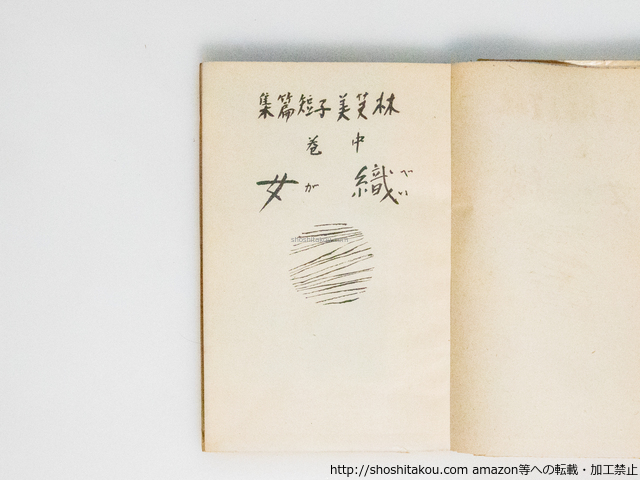 林芙美子短篇集
中巻
織べい女が
shoshitakou.com
http://shoshitakou.com amazon等への転載・加工禁止